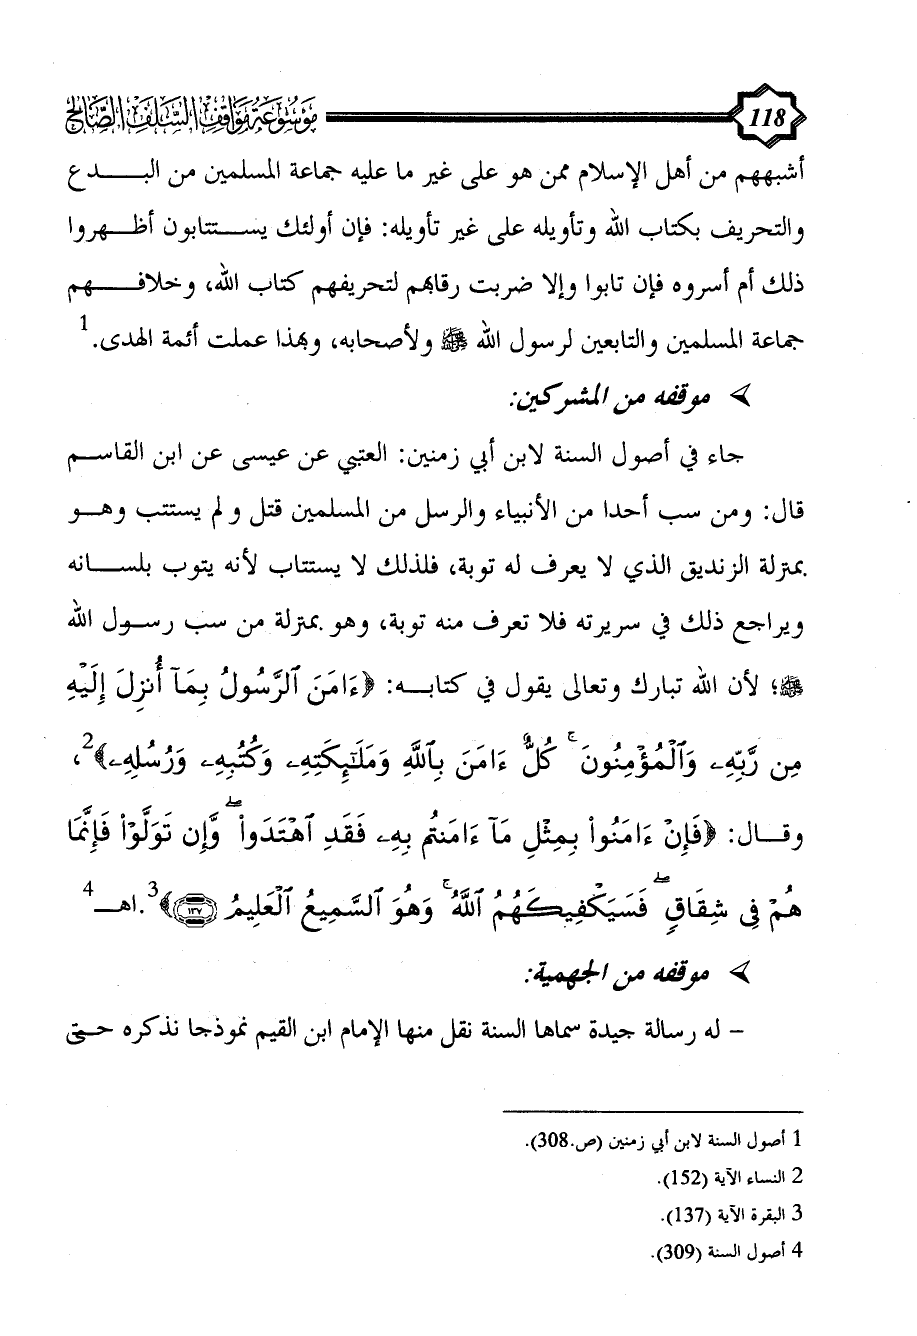 118 موسوعة مواقف السلف الصالح
أشبههم من أهل الإسلام ممن هو على غير ما عليه جماعة المسلمين من البـــــدع
والتحريف بكتاب الله وتأويله على غير تأويله: فإن أولئك يســـتتابون أظهـــروا
ذلك أم أسروه فإن تابوا وإلا ضربت رقابهم لتحريفهم كتاب الله، وخلافـــــهم
جماعة المسلمين والتابعين لرسول الله ﷺ ولأصحابه، وبهذا عملت أئمة الهدى.1
موقفه من المشركين:
جاء في أصول السنة لابن أبي زمنين: العتبي عن عيسى عن ابن القاســم
قال: ومن سب أحدا من الأنبياء والرسل من المسلمين قتل ولم يستتب وهـــو
بمنزلة الزنديق الذي لا يعرف له توبة، فلذلك لا يستتاب لأنه يتوب بلســـانه
ويراجع ذلك في سريرته فلا تعرف منه توبة، وهو بمنزلة من سب رســول الله
ﷺ؛ لأن الله تبارك وتعالى يقول في كتابـــه: ﴿ءَامَنَ ٱلرَّسُولُ بِمَآ أُنزِلَ إِلَيْهِ
مِن رَّبِّهِۦ وَٱلْمُؤْمِنُونَ ۚ كُلٌّ ءَامَنَ بِٱللَّهِ وَمَلَـٰٓئِكَتِهِۦ وَكُتُبِهِۦ وَرُسُلِهِۦ﴾2،
وقـــال: ﴿فَإِنْ ءَامَنُوا۟ بِمِثْلِ مَآ ءَامَنتُم بِهِۦ فَقَدِ ٱهْتَدَوا۟ ۖ وَّإِن تَوَلَّوْا۟ فَإِنَّمَا
هُمْ فِى شِقَاقٍ ۖ فَسَيَكْفِيكَهُمُ ٱللَّهُ ۚ وَهُوَ ٱلسَّمِيعُ ٱلْعَلِيمُ ١٣٧﴾3.اهــ4
موقفه من الجهمية:
- له رسالة جيدة سماها السنة نقل منها الإمام ابن القيم نموذجا نذكره حـــتى
1 أصول السنة لابن أبي زمنين (ص.308).
2 النساء الآية (152).
3 البقرة الآية (137).
4 أصول السنة (309).